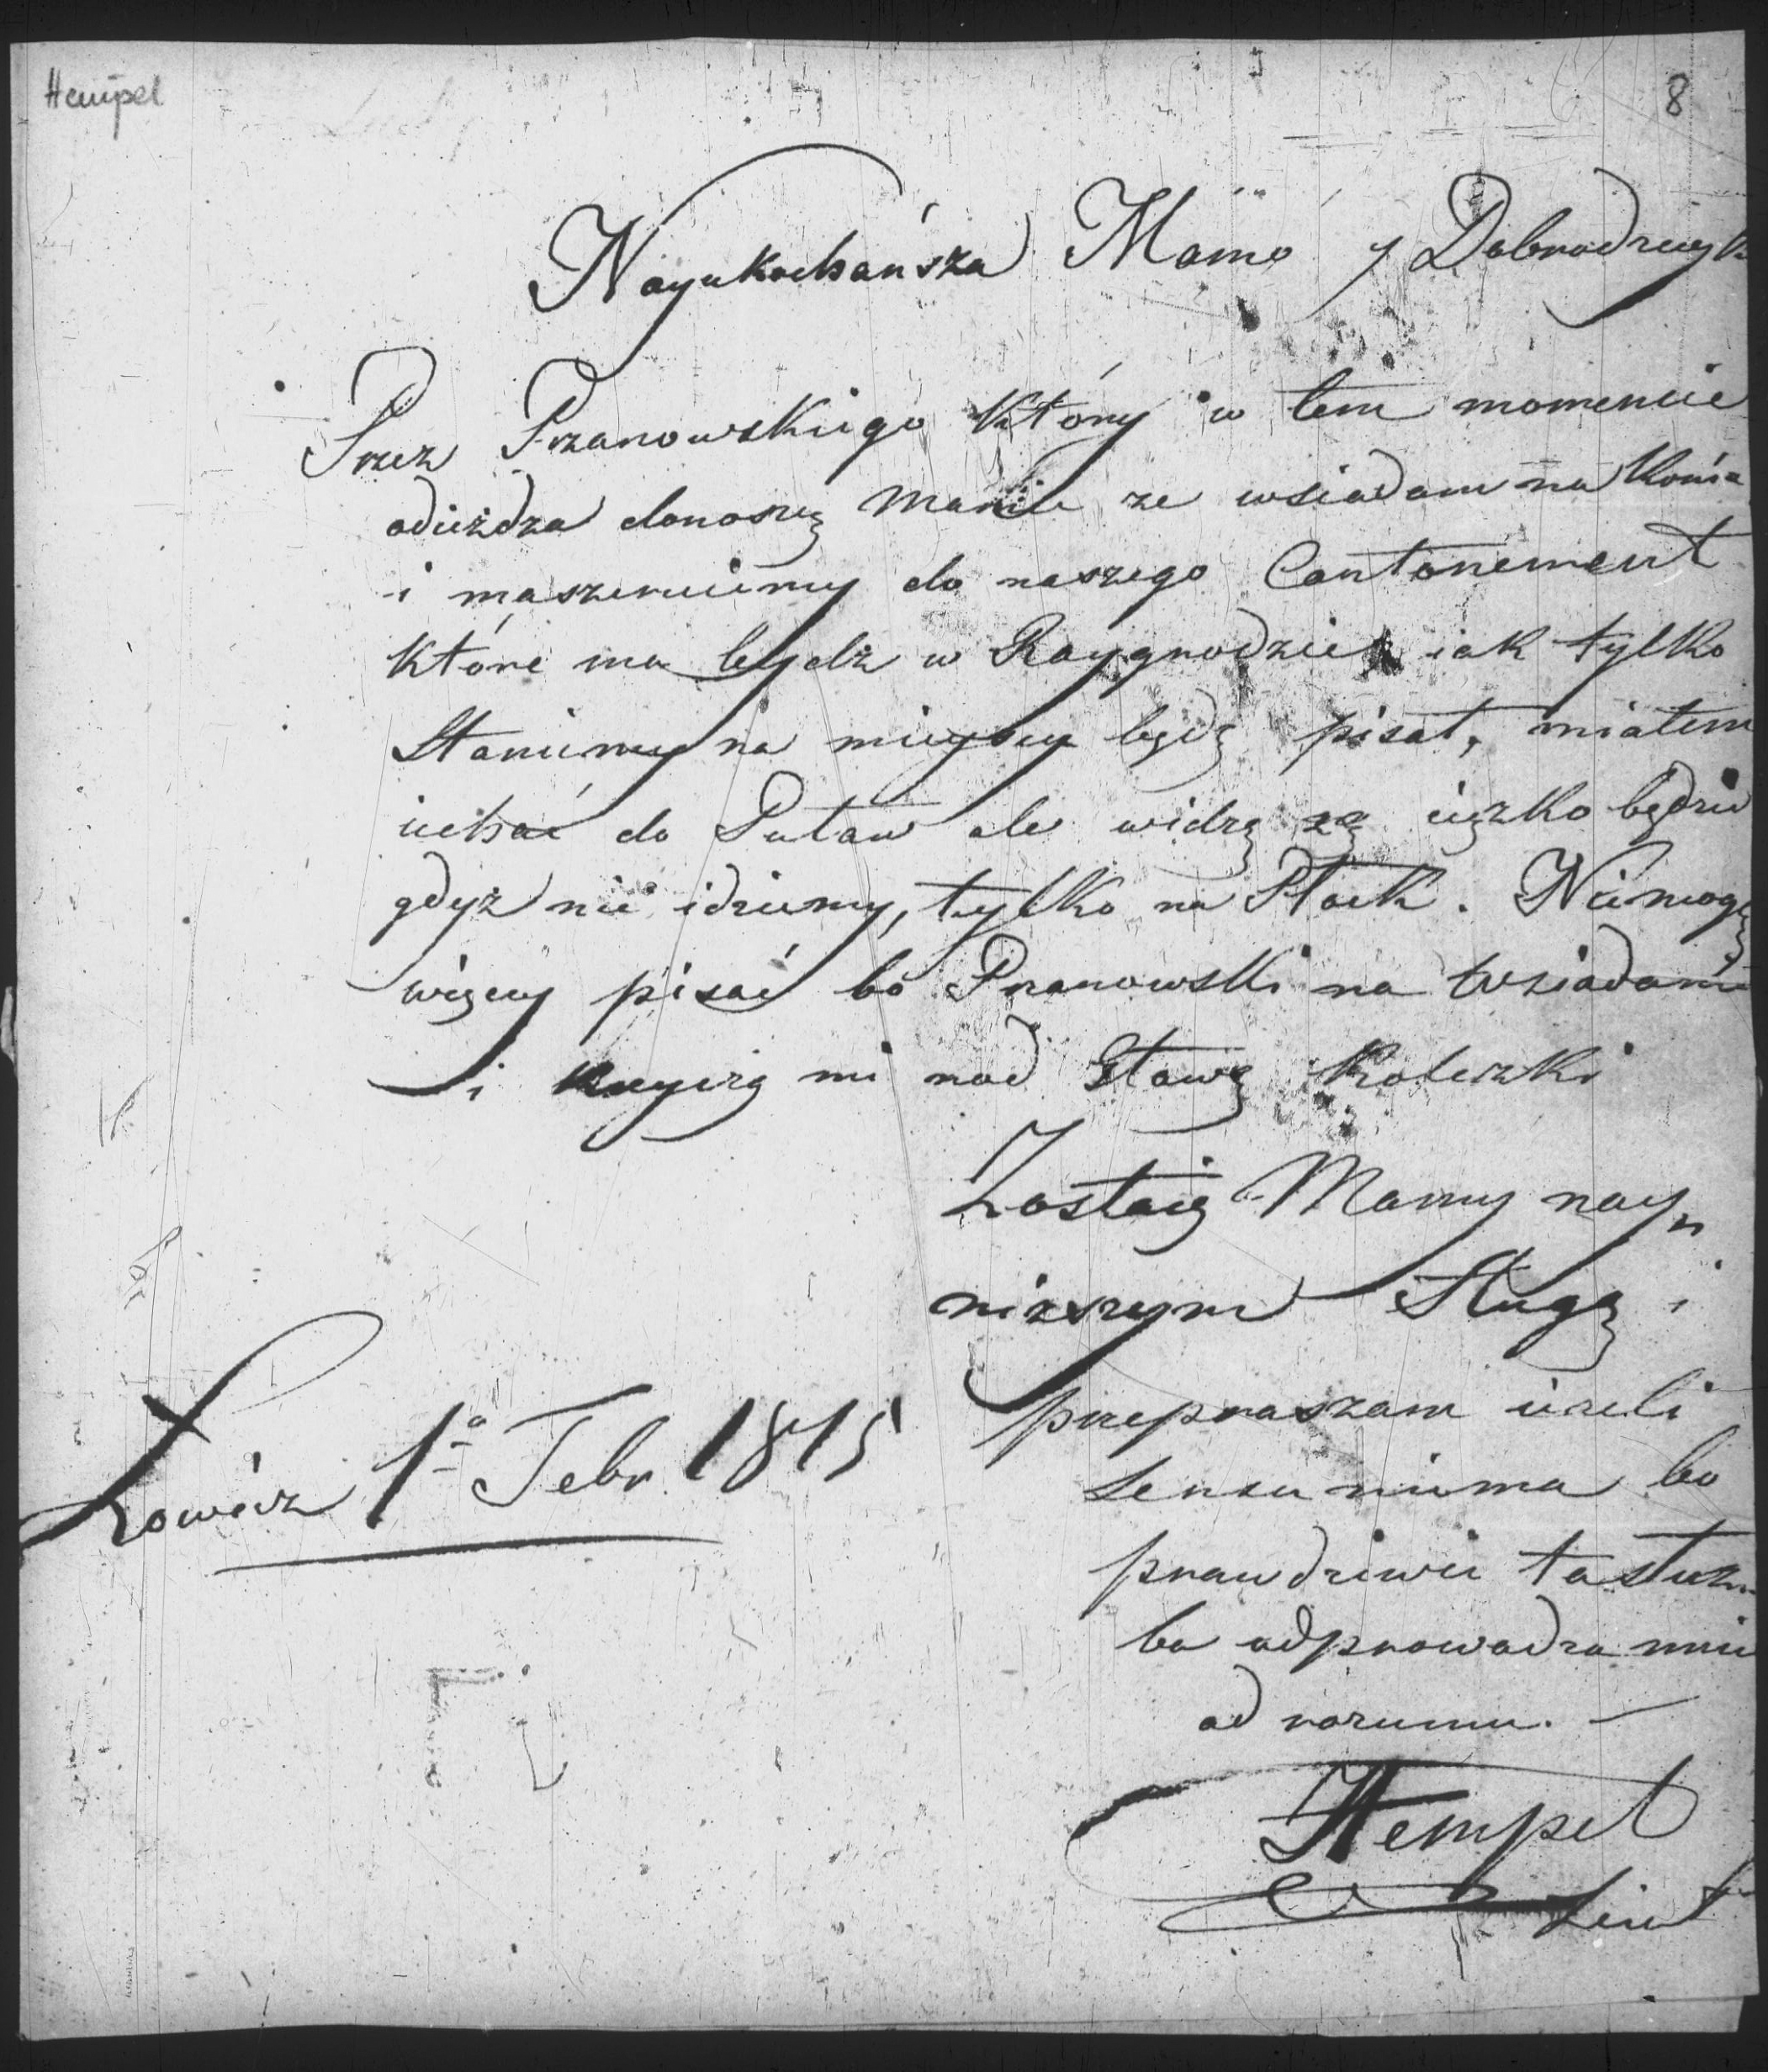 Hempel
8
Nayukochańsza Mamo y Dobrodzieyko
Przez Przanowskiego który w tem momencie
odieżdza donoszę Mamie ze wsiadam na Konia
i maszeruiemy do naszego Cantonement
które ma bydź w Raygrodzie iak tylko
Staniemy na mieyscu będę pisał, miałem
iechać do Puław ale widzę że cięzko będzie
gdyż nie idziemy, tylko na Płock. Niemogę
więcey pisać bo Przanowski na wsiadaniu
i krzyczą mi nad głową Koledzki
Zostaię Mamy nay„
niższym Sługą i
przepraszam ieżeli
sensu niema bo
prawdziwie ta służ„
ba odprowadza mnie
od rozumu. —
Łowicz 1º Febr 1815
Hempel
Lieut